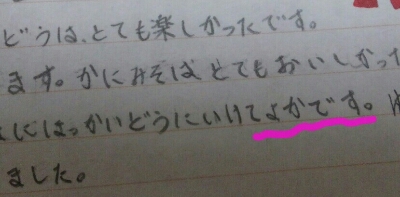 どうは、とても楽しかったです。
ます。かにみそば とてもおいしかった
しにはっかいどうにいけてよかです。
ました。